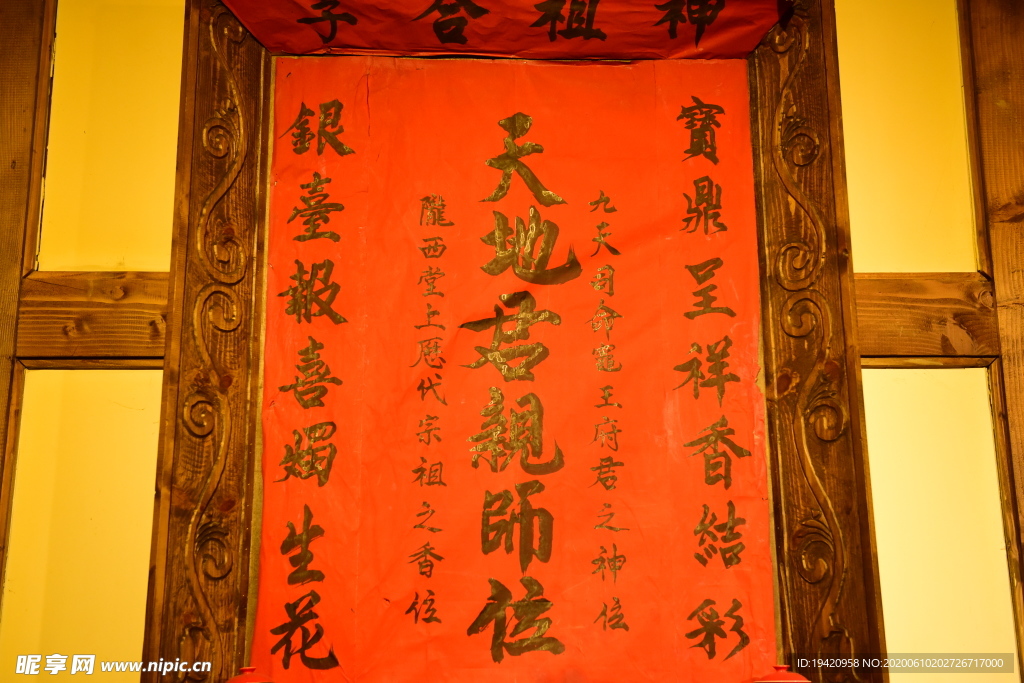 神祖合子
寶鼎呈祥香結彩
九天司命竈王府君之神位
天地君親師位
隴西堂上歷代宗祖之香位
銀臺報喜燭生花
昵享网 www.nipic.cn
ID:19420958 NO:20200610202726717000